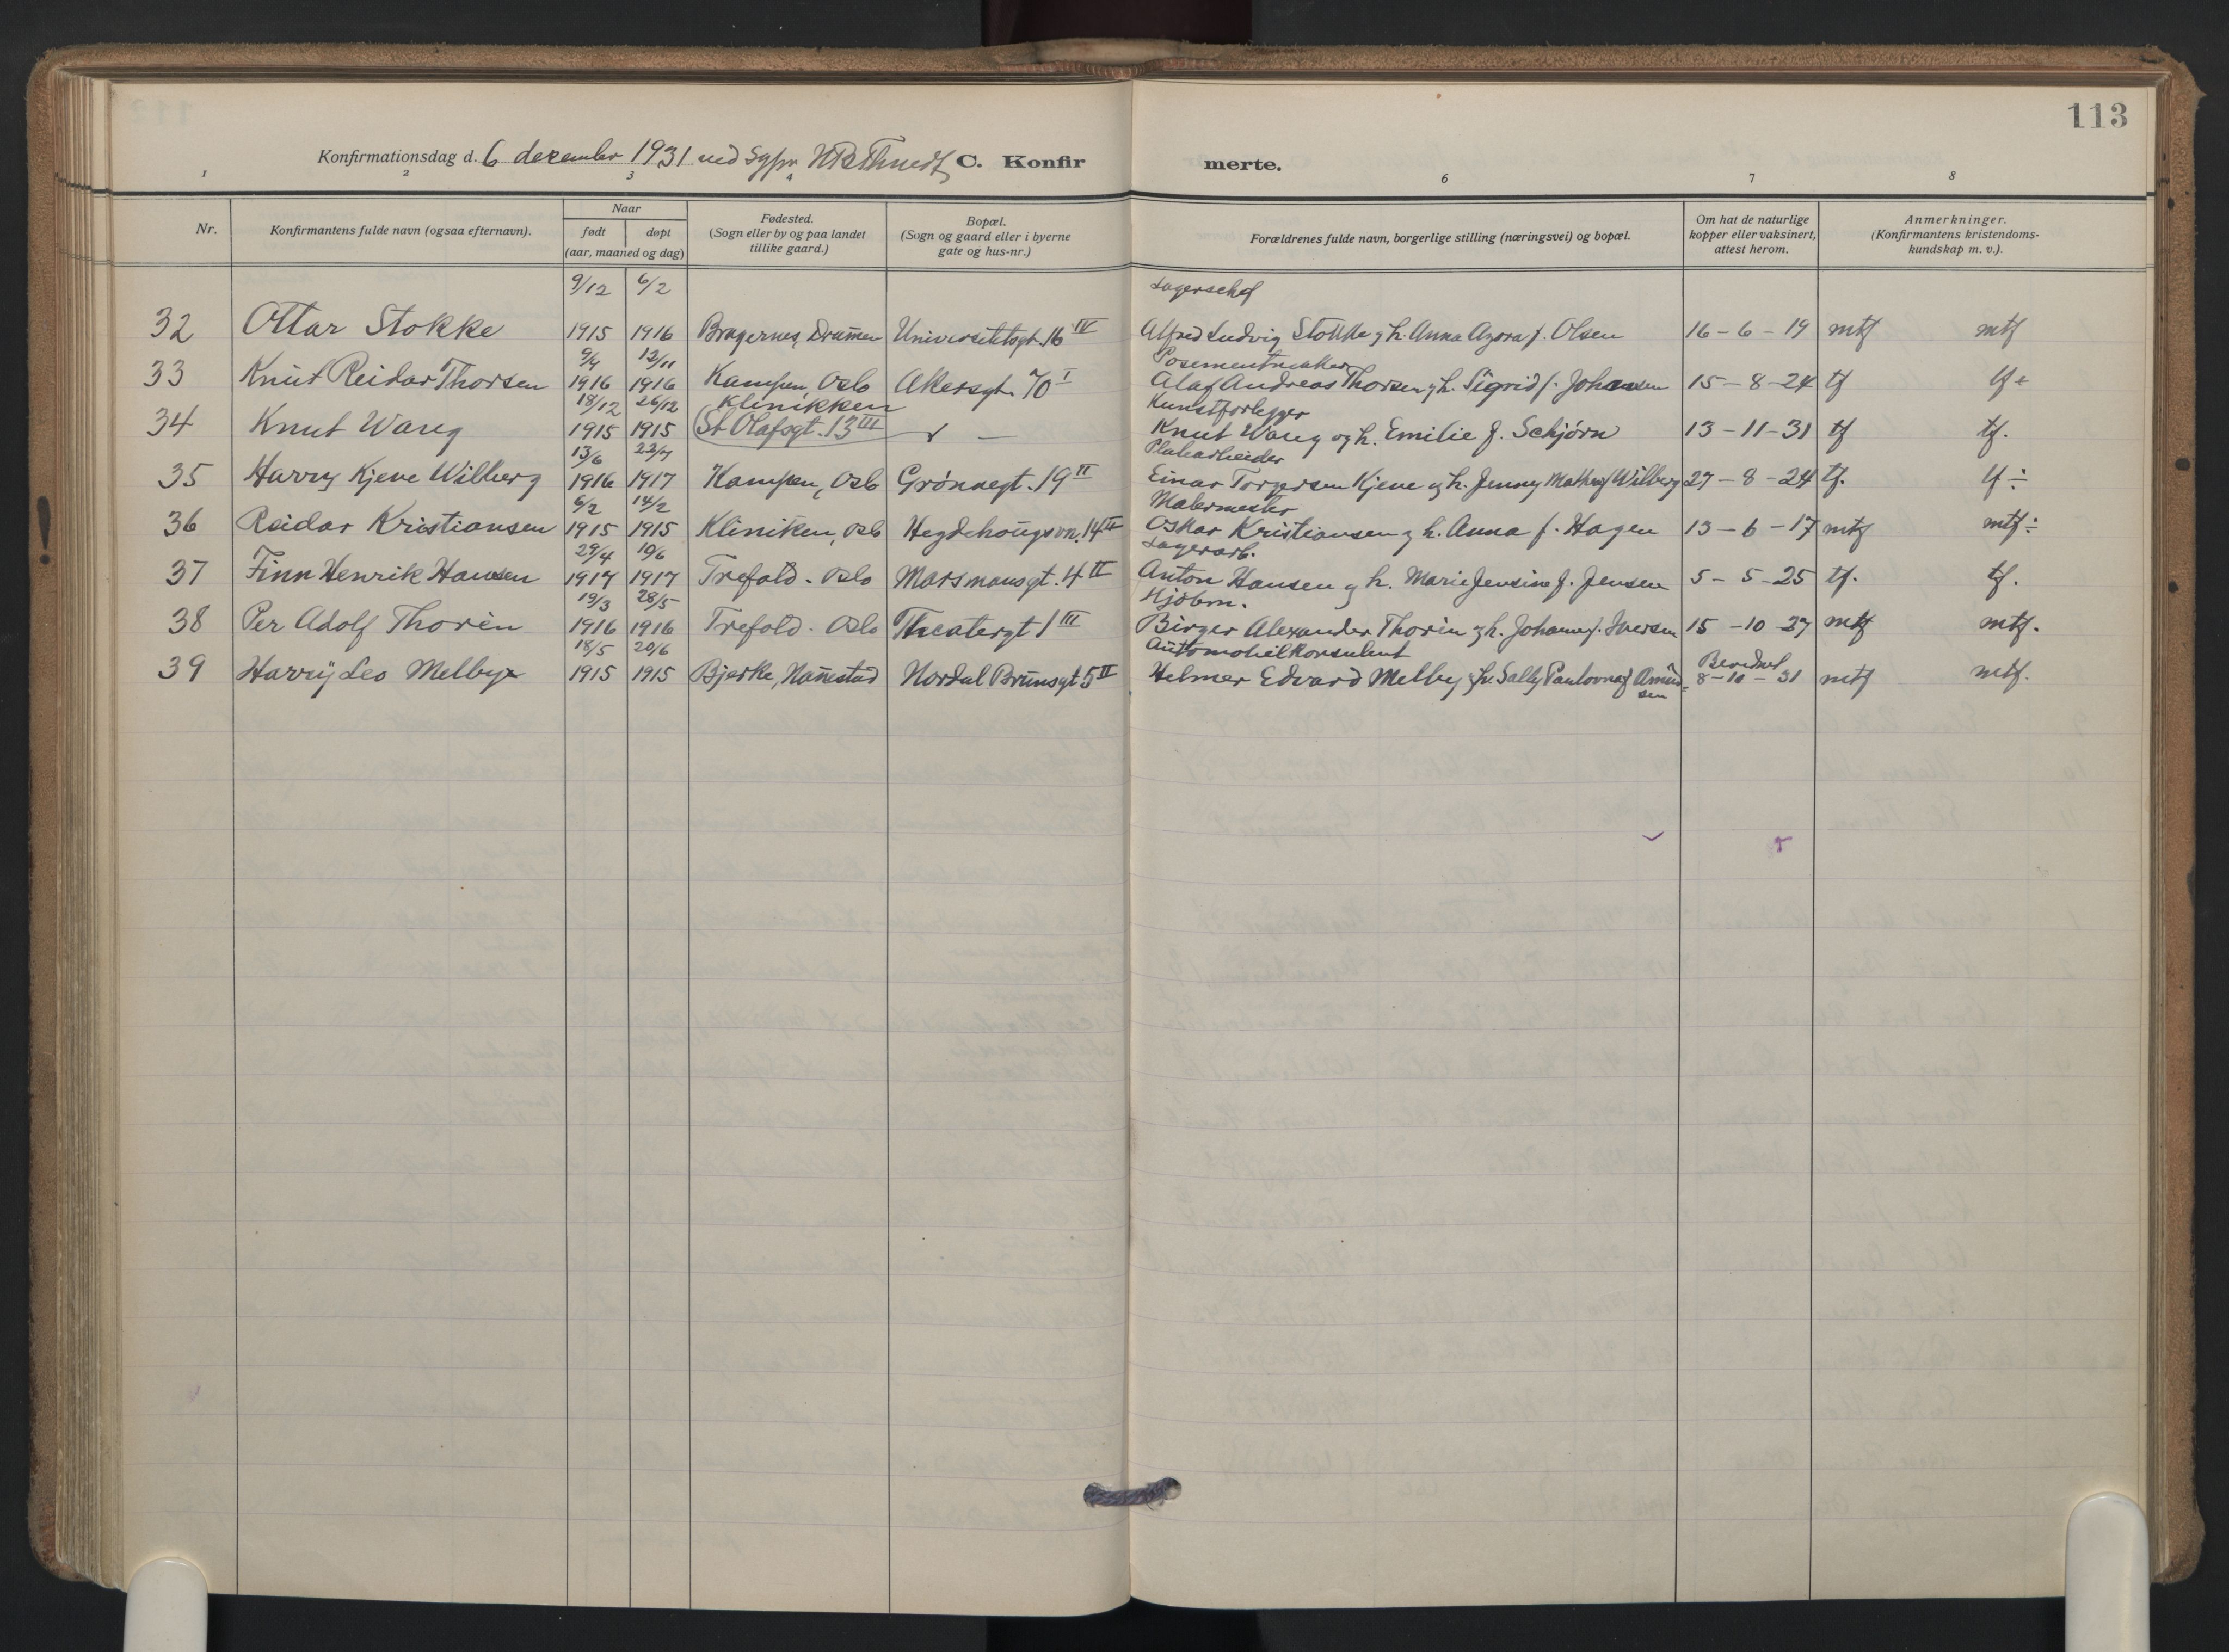 113
Konfirmationsdag d. 6 dezember 1931 ved Sgpr. C. Konfirmerte.
1 2 3 4 6 7 8
Nr. Konfirmantens fulde navn (ogsaa efternavn). Naar født døpt (aar, maaned og dag) Fødested. (Sogn eller by og paa landet tillike gaard.) Bopæl. (Sogn og gaard eller i byerne gate og hus-nr.) Forældrenes fulde navn, borgerlige stilling (næringsvei) og bopæl. Om hat de naturlige kopper eller vaksinert, attest herom. Anmerkninger. (Konfirmantens kristendoms-kundskap m. v.).
9/12 6/2 Lagerschef
32 Ottar Stokke 1915 1916 Bragernes, Dramen Universitetsgt. 16 IV Alfred Ludvig Stokke og h. Anna Azora f. Olsen 16-6-19 mtf mtf
9/4 12/11 Posementmaker
33 Knut Reidar Thorsen 1916 1916 Kampen, Oslo Akersgt. 70 I Olaf Andreas Thorsen og h. Sigrid f. Johansen 15-8-24 tf tf ÷
18/12 26/12 Klinikken Kunstforlegger
34 Knut Waug 1915 1915 St Olafsgt. 13 III — Knut Waug og h. Emilie f. Schjørn 13-11-31 tf tf.
13/6 22/7
35 Harry Kjeve Wilberg 1916 1917 Kampen, Oslo Grønnegt. 19 II Einar Torgersen Kjeve og h. Jenny Math. f Wilberg 27-8-24 tf. tf ÷
6/2 14/2 Malermester
36 Reidar Kristiansen 1915 1915 Kliniken, Oslo Hegdehougsvn. 14 II Oskar Kristiansen og h. Anna f. Hagen 13-6-17 mtf mtf ÷
29/4 10/6 Lagerarb.
37 Finn Henrik Hansen 1917 1917 Trefold. Oslo Marsmansgt. 4 II Anton Hansen og h. Marie Jensine f. Jensen 5-5-25 tf. tf.
19/3 28/5 Kjøbm.
38 Per Adolf Thorén 1916 1916 Trefold. Oslo Theatergt 1 III Birger Alexander Thorén og h. Johanne f. Iversen 15-10-27 mtf mtf.
18/5 20/6 Automobilkonsulent
39 Harry Leo Melbye 1915 1915 Bjerke, Nanestad Nordal Brunsgt 5 II Helmer Edvard Melby og h. Sally Paulovna f Amundsen 8-10-31 mtf mtf.